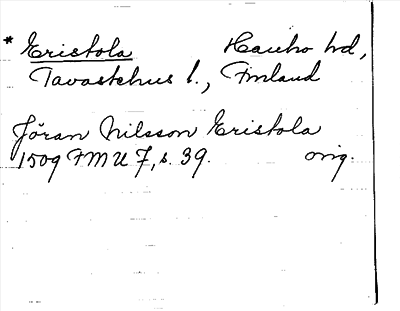 * Eristola Hauho hd,
Tavastehus l., Finland
Jöran Nilsson Eristola
1509 FMU 7, s. 39. orig.